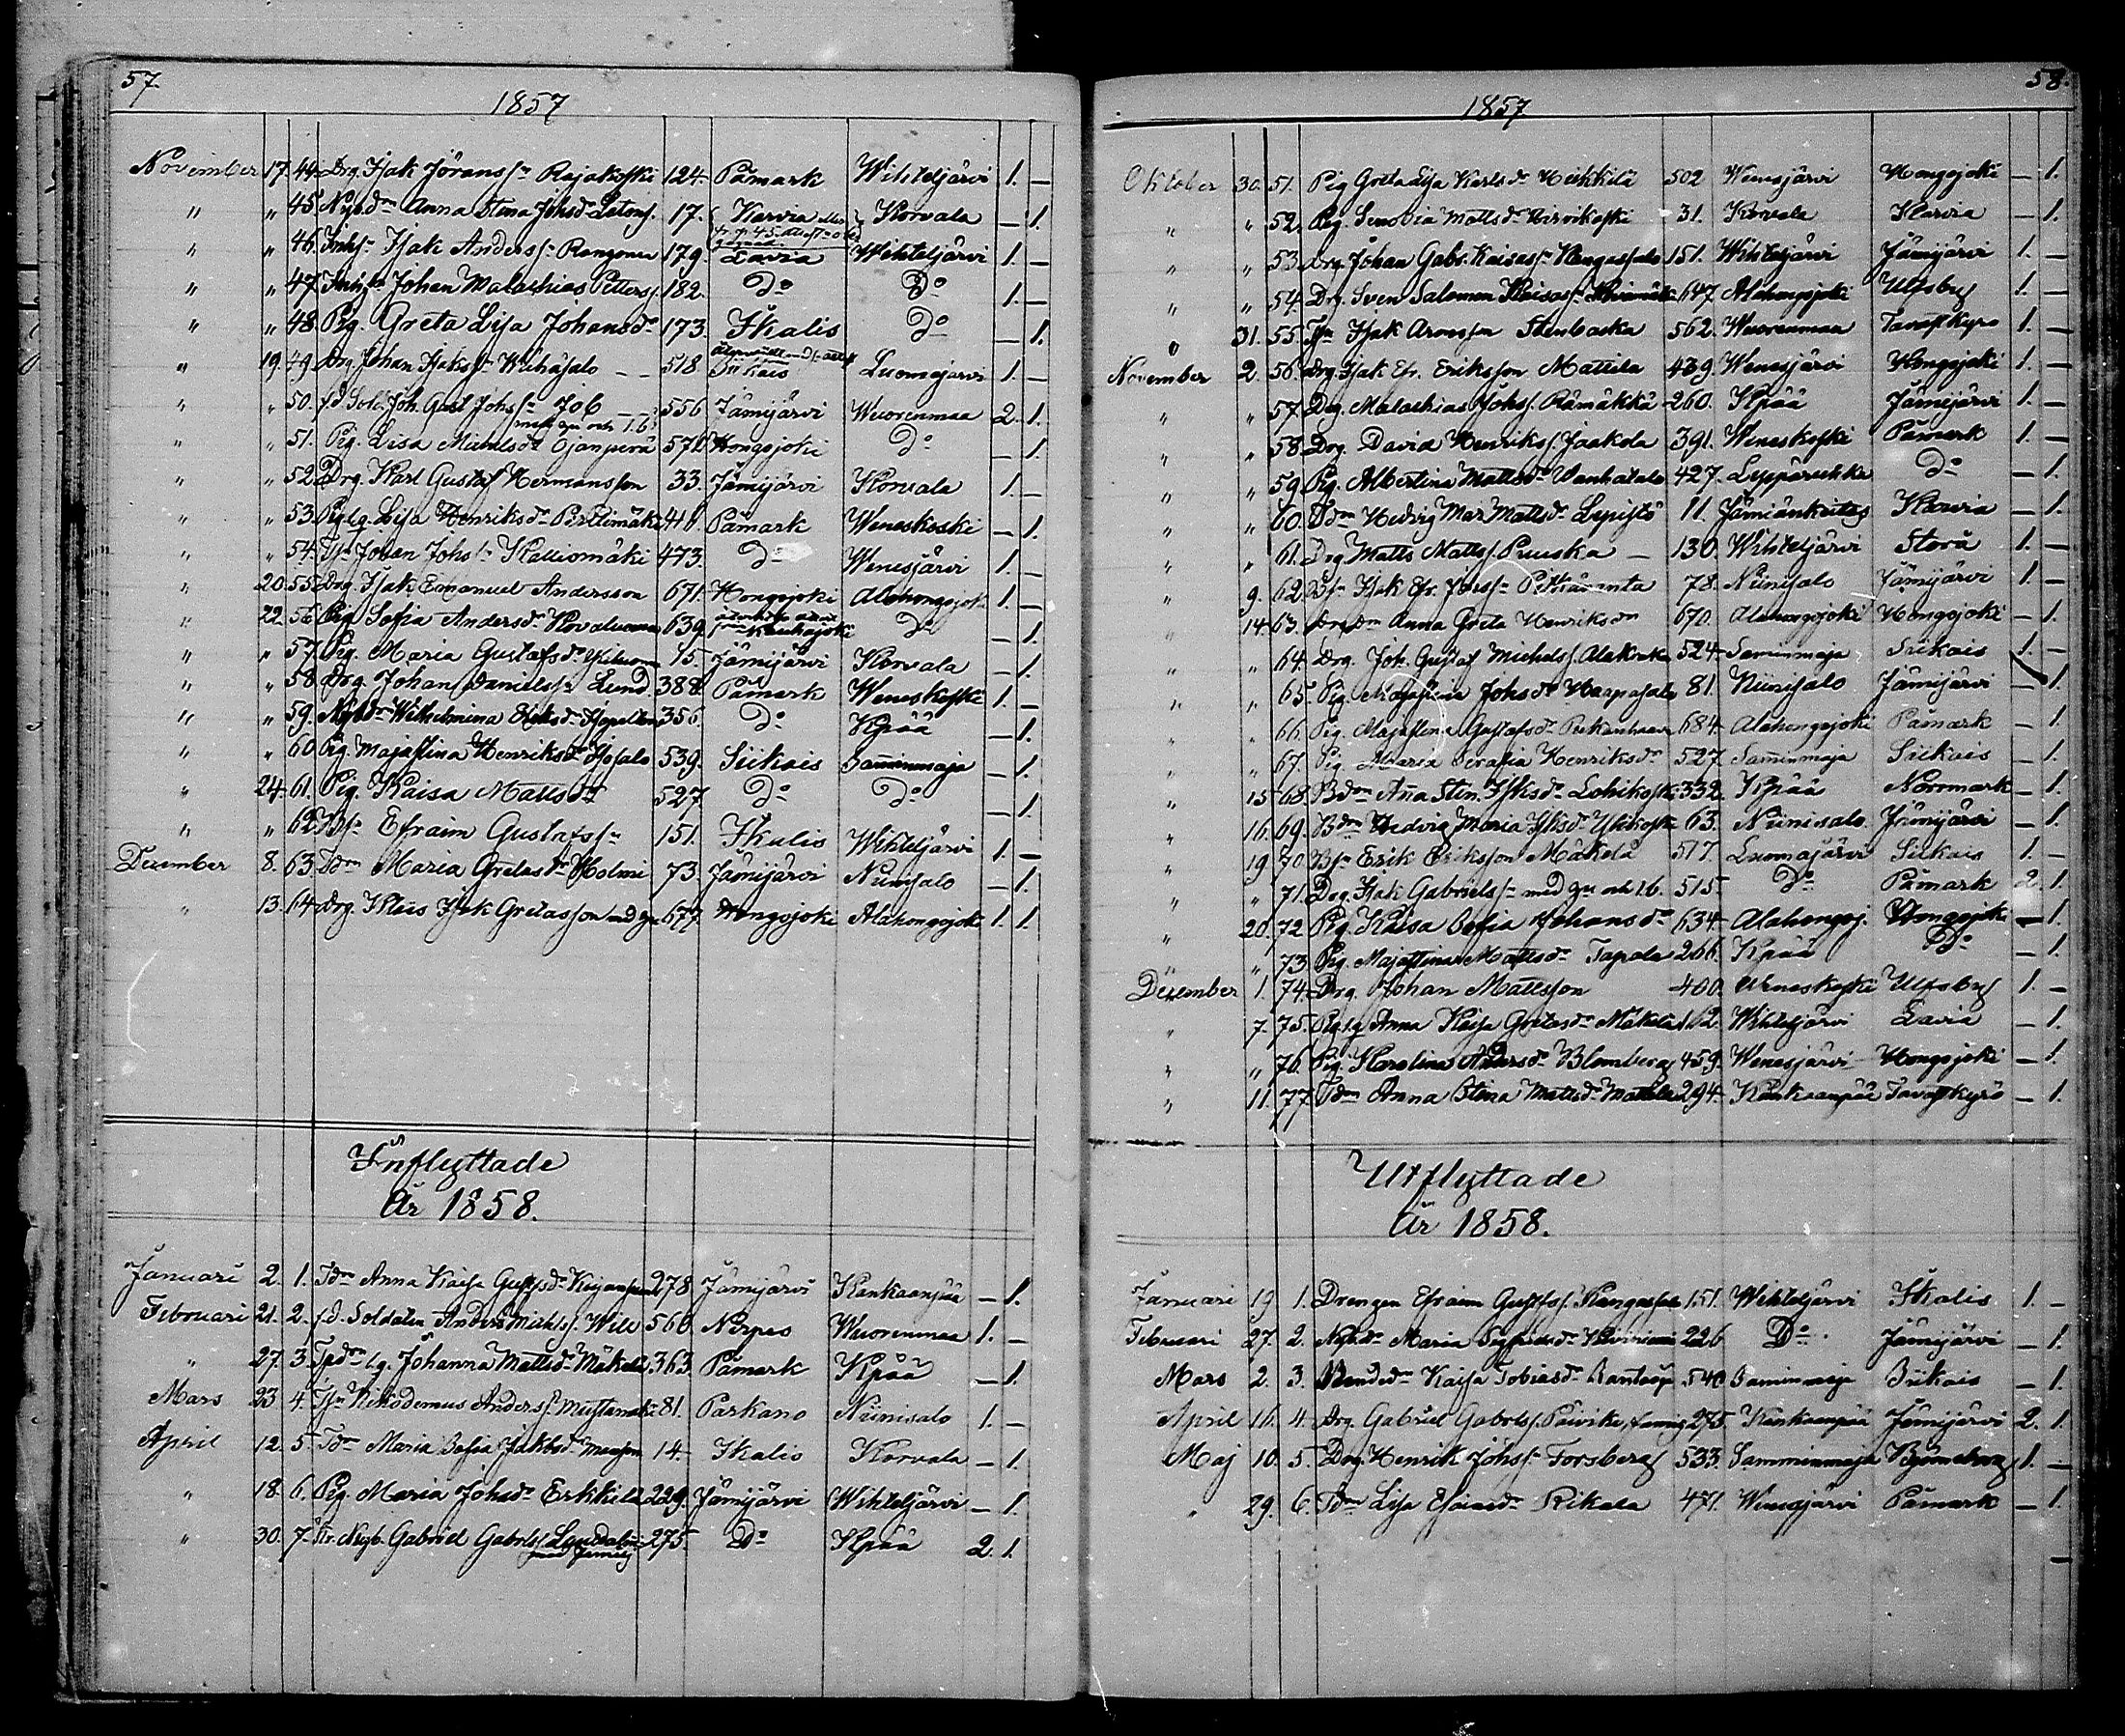 57.
1857
November 17. 44. Drg. Isak Jöranss:n Rajakoski 124. Påmark Wihteljärvi 1. —
" " 45 Nybdn Anna Stena Johsdr 17. Karvia Korvala — 1.
" " 46. Inhsn Isak Anderss:n Rongonen 179. Lavia Wihteljärvi 1. —
" " 47. Inhsn Johan Malachias Petterss. 182. Do Do 1. —
" " 48. Pig. Greta Lisa Johansdr 173. Ikalis Do — 1.
" 19. 49. Drg. Johan Isakss:n Wihäsalo — — 518 Siikais Luomajärvi 1. —
" " 50. f.d. Sold. Joh. Gust. Johss:n Job — 556 Jämijärvi Wuorenmaa 2. 1.
med hu och 1. b.
" " 51. Pig. Lisa Michelsdr Ojanperä 572 Hongojoki Do — 1.
" " 52. Drg. Karl Gustaf Hermansson 33. Jämijärvi Korvala 1. —
" " 53. Pig. lg. Lisa Henriksdr Perttimäki 410 Påmark Weneskoski — 1.
" " 54. Johan Johss:n Kalliomäki 473. Do Wenesjärvi 1. —
" 20. 55. Drg. Isak Emanuel Andersson 671. Hongojoki Alahongojoki 1. —
" 22. 56. Pig. Sofia Andersdr 639. Kauhajoki Do — 1.
" " 57. Pig. Maria Gustafsdr 15. Jämijärvi Korvala — 1.
" " 58. Drg. Johan Danielss:n Lund 388. Påmark Weneskoski 1. —
" " 59. Nybdr Wilhelmina 356. Do Kpää — 1.
" " 60. Pig. Majastina Henriksdr Isosalo 539. Siikais Samminmaja — 1.
" 24. 61. Pig. Kaisa Mattsdr 527. Do Do — 1.
" " 62. Bsn Efraim Gustafss:n 151. Ikalis Wihteljärvi 1. —
December 8. 63. Tdn Maria Gretasdr Holmi 73. Jämijärvi Niinisalo — 1.
" 13. 64. Drg. Isak Gretasson med hu 677. Hongojoki Alahongojoki 1. 1.
Inflyttade
År 1858.
Januari 2. 1. Tdn Anna Kaisa Gustfsdr 278 Jämijärvi Kankaanpää — 1.
Februari 21. 2. f.d. Soldaten Anders Michlss. Will 560 Nerpes Wuorenmaa 1. —
" 27. 3. lg. Johanna Mattsdr Mäkelä 363. Påmark Kpää — 1.
Mars 23 4. Nikodemus Anderss. Mustamäki 81. Parkano Niinisalo 1. —
April 12. 5. Tdn Maria Sofia 14. Ikalis Korvala — 1.
" 18. 6. Pig. Maria Johsdr Erkkilä 229. Jämijärvi Wihteljärvi — 1.
" 30. 7. Nyb. Gabriel Gabrlss. 275 Do Kpää 2. 1.
med familj
58.
1857.
Oktober 30. 51. Pig Greta Lisa Karlsdr Heikkilä 502 Wenesjärvi Hongojoki — 1.
" " 52. Pig. Mattsdr Hirvikoski 31. Korvala Karvia — 1.
" " 53. Drg. Johan Gabr. Kaisass:n Kangassalo 151. Wihteljärvi Jämijärvi 1. —
" " 54. Drg. Sven Salomon Kaisass:n 647. Alahongojoki Ulfsby 1. —
" 31. 55. Isak Aronsson Stenbacka 562. Wuorenmaa Tavastkyro 1. —
November 2. 56. Drg. Isak Er. Eriksson Mattila 439. Wenesjärvi Hongojoki 1. —
" " 57. Drg. Malachias Johss. Rämäkkä 260. Kpää Jämijärvi 1. —
" " 58. Drg. David Henrikss. Jaakola 391. Weneskoski Påmark 1. —
" " 59. Pig. Albertina Mattsdr Wanhatalo 427. Leppäruhka Do — 1.
" " 60. Tdn Hedvig Mar. Mattsdr Lepistö 11. Jämiänkeidas Karvia — 1.
" " 61. Drg Matts Mattss. Puuska — 130. Wihteljärvi Storå 1. —
" 9. 62. Bsn Isak Efr. Johss:n 78. Niinisalo Jämijärvi 1. —
" 14. 63. Anna Greta Henriksdr 670. Alahongojoki Hongojoki — 1.
" " 64. Drg. Joh. Gustaf Michelss. 524. Samminmaja Siikais 1. —
" " 65. Pig. Johsdr Haapasalo 81. Niinisalo Jämijärvi — 1.
" " 66. Pig. Majastina Gustafsdr 684. Alahongojoki Påmark — 1.
" " 67. Pig. Maria Serafia Henriksdr 527. Samminmaja Siikais — 1.
" 15 68. Bdn Anna Stin. Isksdr Lohikoski 332. Kpää Norrmark — 1.
" 16. 69. Bdn Hedvig Maria Isksdr Ylikoski 63. Niinisalo Jämijärvi — 1.
" 19. 70. Bsn Erik Eriksson Mäkelä 517. Luomajärvi Siikais 1. —
" " 71. Drg. Isak Gabrielss:n med hu och 1 b. 515 Do Påmark 2. 1.
" 20. 72. Pig. Kaisa Sofia Johansdr 634. Alahongoj. Hongojoki — 1.
" " 73. Pig. Majastina Mattsdr Tapola 266. Kpää Do — 1.
December 1. 74. Drg. Johan Mattsson 400. Weneskoski Ulfsby 1. —
" 7. 75. Pig. lg. Anna Kaisa Gretasdr Mäkelä 112. Wihteljärvi Lavia — 1.
" " 76. Pig. Karolina Andersdr Blomberg 459. Wenesjärvi Hongojoki — 1.
" 11. 77. Tdn Anna Stina Mattsdr Mattila 294. Kankaanpää Tavastkyrö — 1.
Utflyttade
År 1858.
Januari 19 1. Drengen Efraim Gustfss. Kangassalo 151. Wihteljärvi Ikalis 1. —
Februari 27. 2. Maria 226 Do Jämijärvi — 1.
Mars 2. 3. Kaisa Tobiasdr 540 Samminmaja Siikais — 1.
April 16. 4. Drg. Gabriel Gabrlss. familj 275 Kankaanpää Jämijärvi 2. 1.
Maj 10. 5. Drg. Henrik Johss. Forsberg 533. Samminmaja Björneborg 1. —
" 29. 6. Tdn Lisa Esaiasdr Rikala 471. Wenesjärvi Påmark — 1.